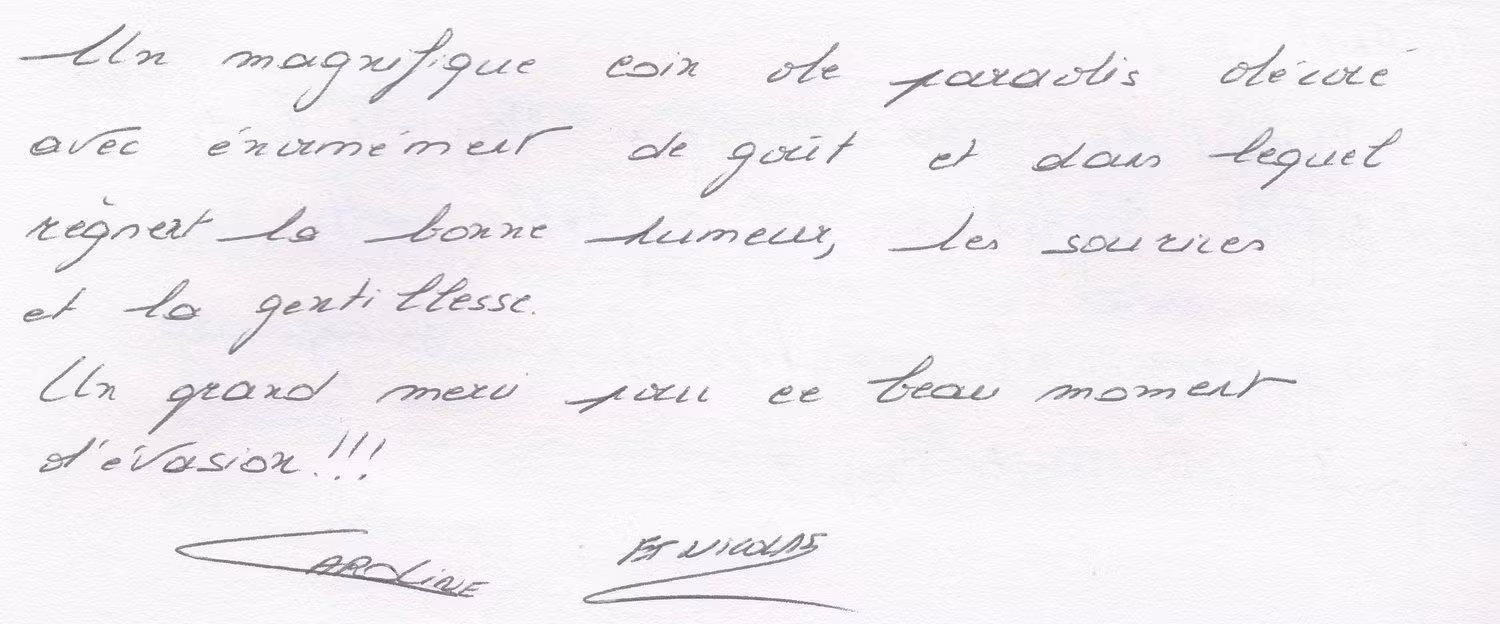 Un magnifique coin de paradis décoré
avec énormément de goût et dans lequel
règnent la bonne humeur, les sourires
et la gentillesse.
Un grand merci pour ce beau moment
d'évasion!!!
CAROLINE ET NICOLAS